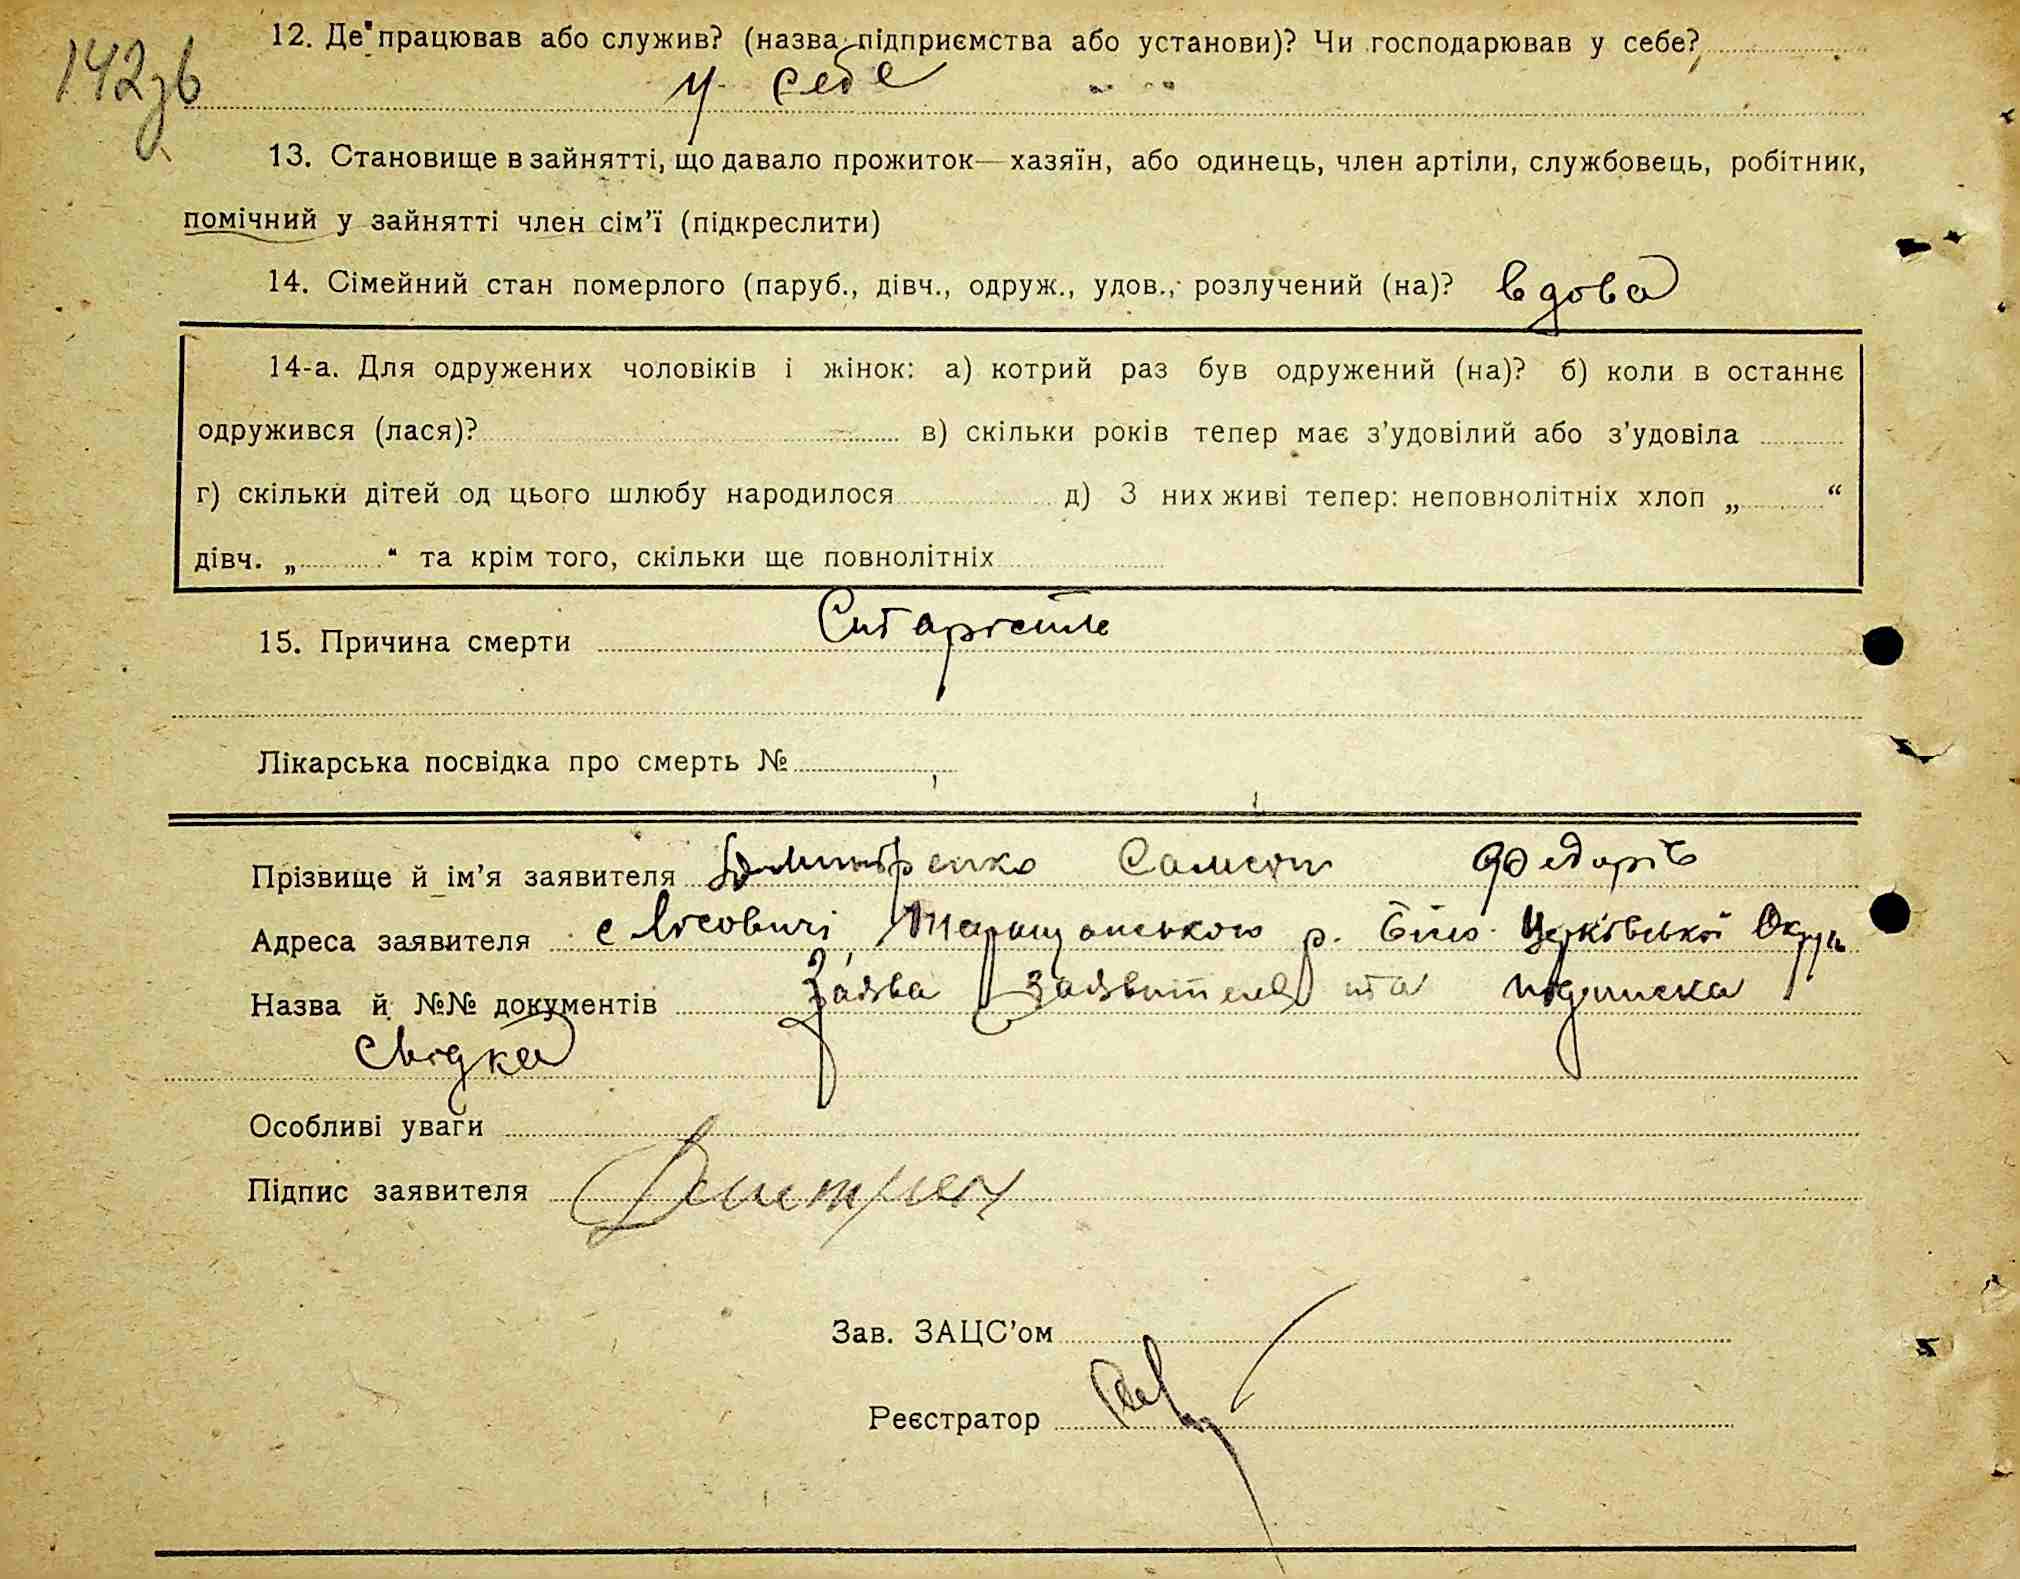 142зв
12. Де працював або служив? (назва підприємства або установи)? Чи господарював у себе?
у себе
13. Становище в зайнятті, що давало прожиток—хазяїн, або одинець, член артіли, службовець, робітник,
помічний у зайнятті член сім'ї (підкреслити)
14. Сімейний стан померлого (паруб., дівч., одруж., удов., розлучений (на)? вдова
14-а. Для одружених чоловіків і жінок: а) котрий раз був одружений (на)? б) коли в останнє
одружився (лася)? в) скільки років тепер має з'удовілий або з'удовіла
г) скільки дітей од цього шлюбу народилося д) З них живі тепер: неповнолітніх хлоп „ “
дівч. „ “ та крім того, скільки ще повнолітніх
15. Причина смерти Старість
Лікарська посвідка про смерть №
Прізвище й ім'я заявителя Дмитренко Самсон Федорів
Адреса заявителя с Лісовичі, Таращанського р. Біло Церківської Округи
Назва й №№ документів Заява заявителя та підписка
свідка
Особливі уваги
Підпис заявителя
Зав. ЗАЦС'ом
Реєстратор